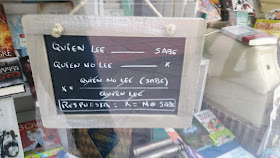 QUIEN LEE ——— SABE
QUIEN NO LEE ——— X
X = QUIEN NO LEE (SABE)
QUIEN LEE
RESPUESTA: X = NO SABE